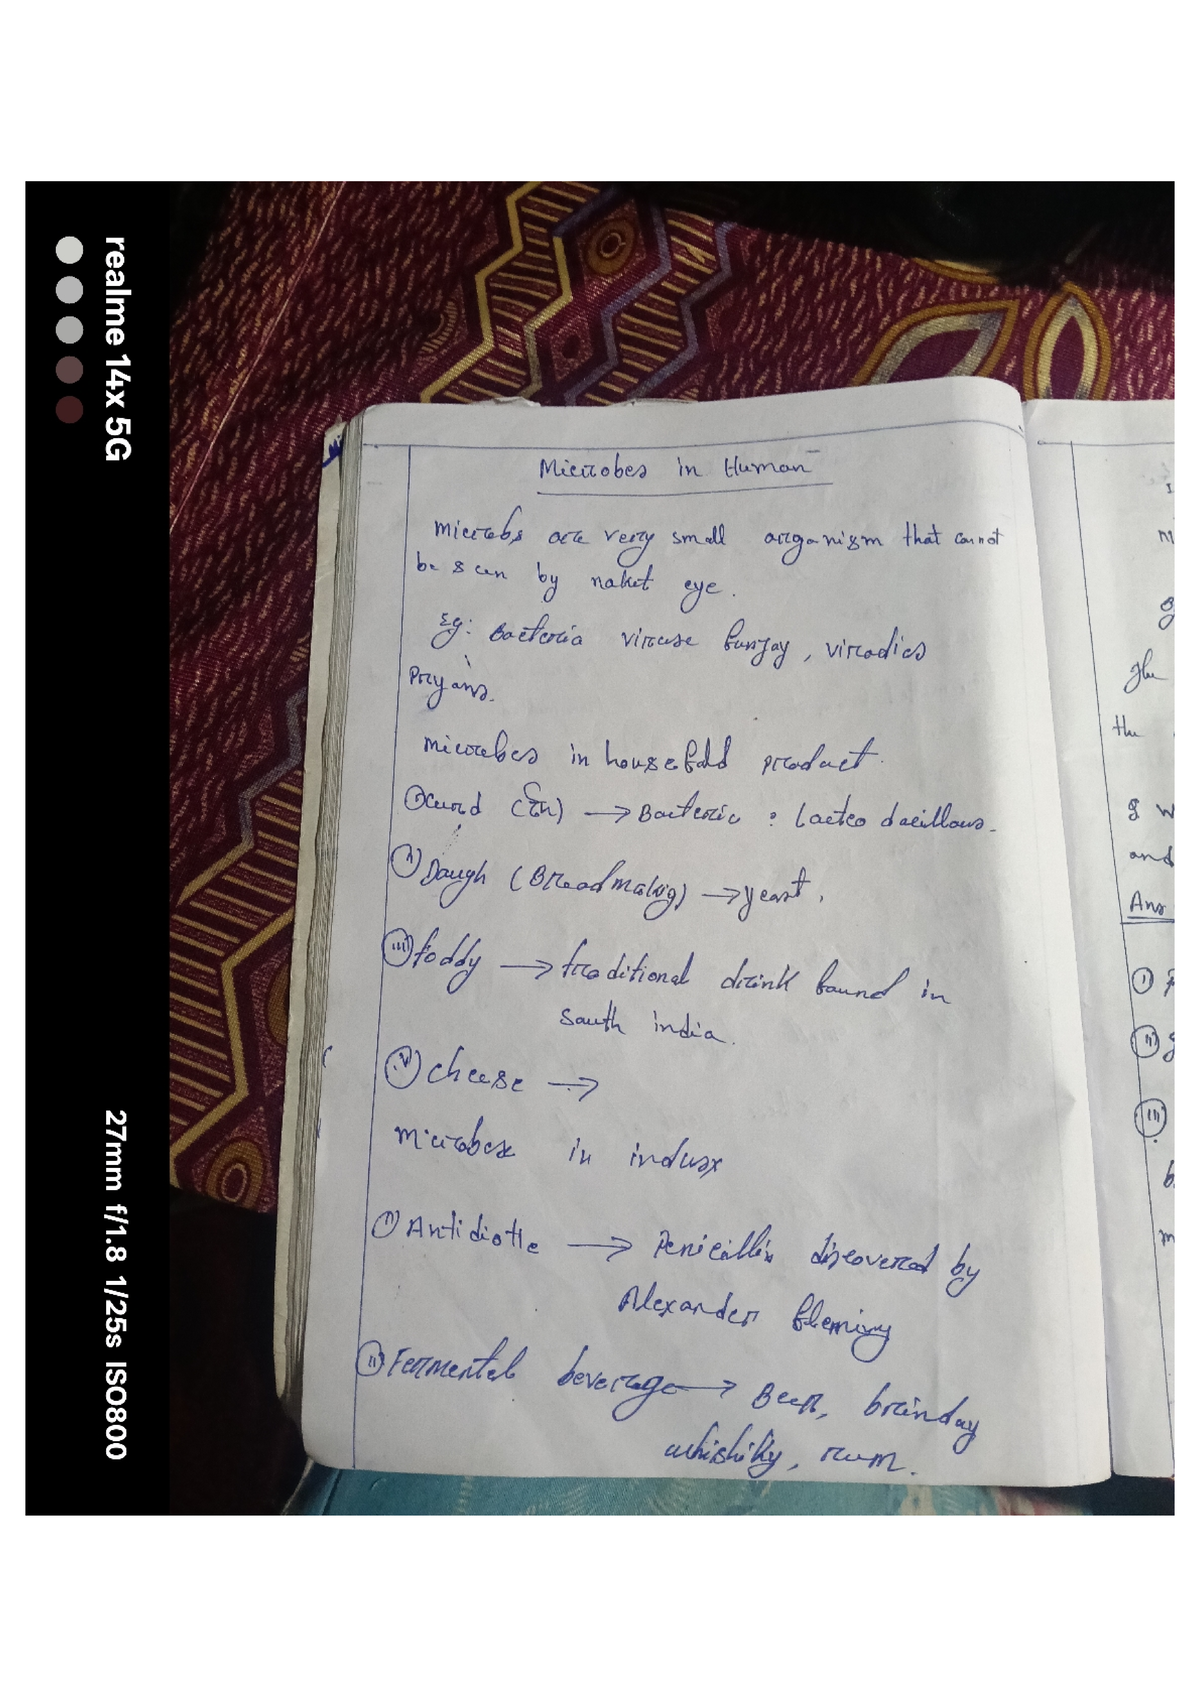 Microbes in Human
Microbs are very small organism that cannot
be seen by naket eye.
Eg: Bacteria viruse funjay, virodies
Pryans.
Microbes in housefold product.
① curd → Bacteric : Lacteo dacillous.
ⓘⓘ Dough (Breadmaking) → yeast.
ⓘⓘⓘ Foddy → traditional drink found in
South india.
ⓘⓥ cheese →
Microbes in
ⓘ Antidiotte → Penicillin discovered by
Alexander fleming
ⓘⓘ Fermental beverage → Beer, brainday
whishiky, rum.
the
g w
and
Ans
ⓘ
ⓘⓘ
ⓘⓘⓘ
realme 14x 5G
27mm f/1.8 1/25s ISO800